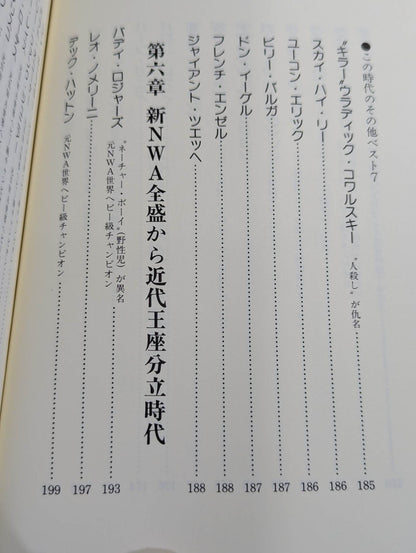 ●この時代のその他ベスト7
〝キラー〟ウラディック・コワルスキー 〝人殺し〟が仇名 185
スカイ・ハイ・リー 186
ユーコン・エリック 186
ビリー・バルガ 187
ドン・イーグル 187
フレンチ・エンゼル 188
ジャイアント・ツエッヘ 188
第六章 新NWA全盛から近代王座分立時代
バディ・ロジャーズ 〝ネーチャー・ボーイ〟(野性児)が異名
元NWA世界ヘビー級チャンピオン 193
レオ・ノメリーニ 197
ディック・ハットン 元NWA世界ヘビー級チャンピオン 199